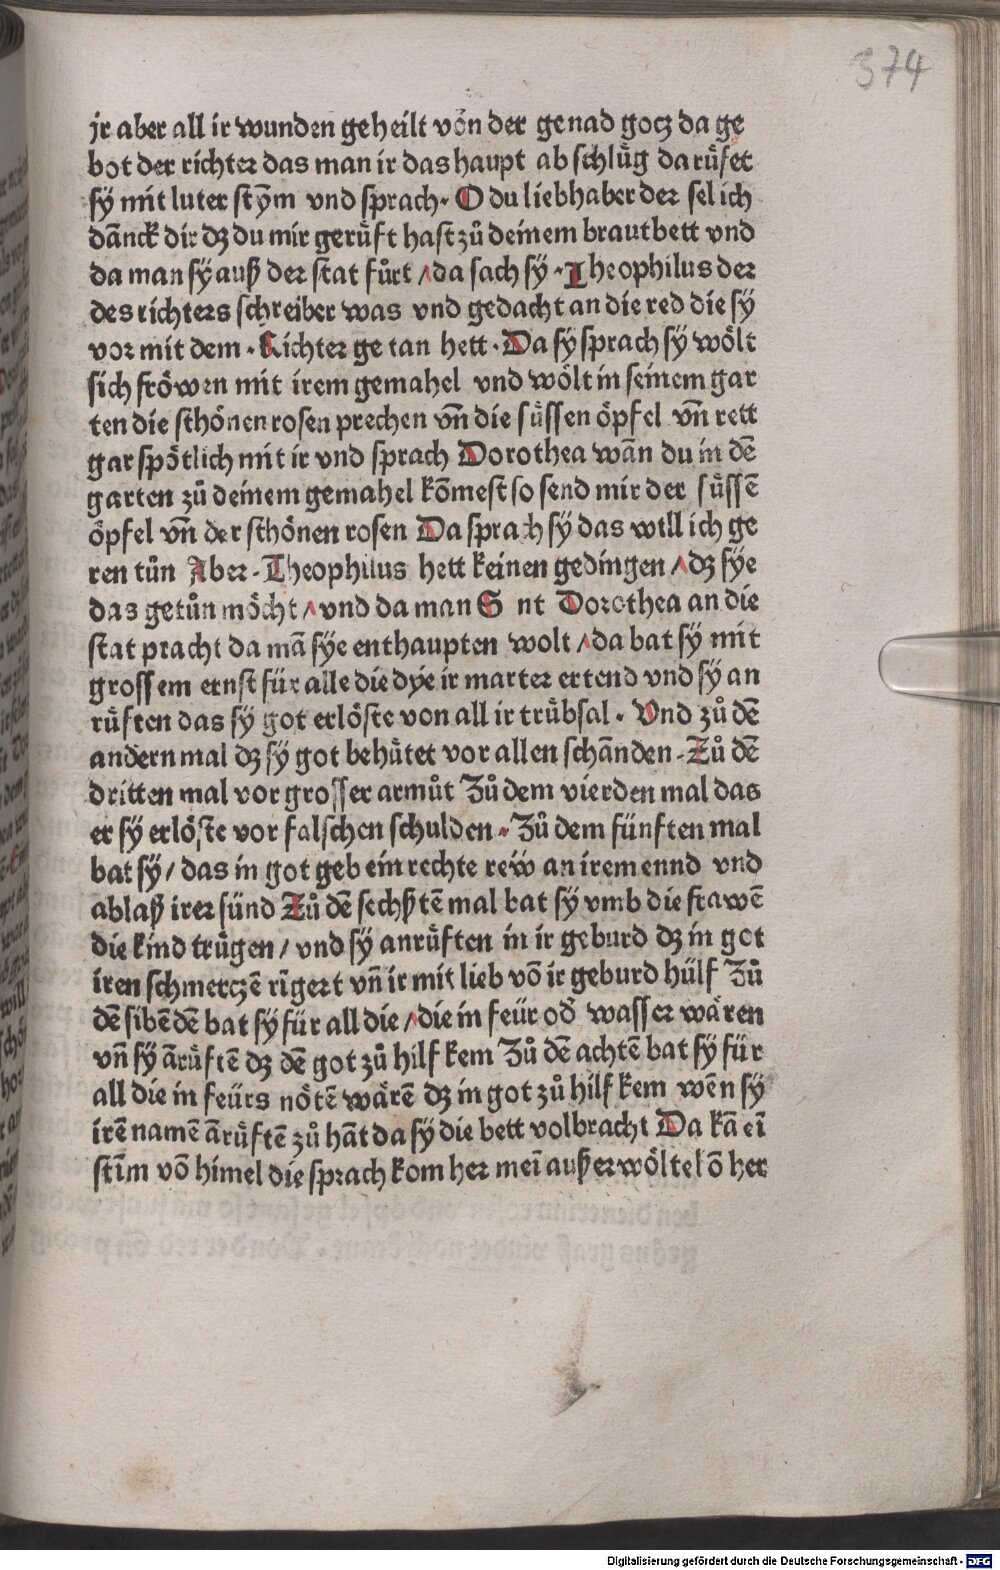 374
jr aber all ir wunden geheilt von der genad gocz da ge
bot der richter das man ir das haupt ab schlůg da růfet
sy mit luter stym vnd sprach. O du liebhaber der sel ich
dānck dir dz du mir gerůft hast zů deinem brautbett vnd
da man sy auß der stat fůrt / da sach sy. Theophilus der
des richters schreiber was vnd gedacht an die red die sy
vor mit dem. Richter ge tan hett. Da sy sprach sy wölt
sich fröwen mit irem gemahel vnd wölt in seinem gar
ten die schönen rosen prechen vn̄ die sůssen öpfel vn̄ rett
gar spötlich mit ir vnd sprach Dorothea wān du in dē
garten zů deinem gemahel kōmest so send mir der sůssē
öpfel vn̄ der schönen rosen Da sprach sy das will ich ge
ren tůn Aber. Theophilus hett keinen gedingen / dz sye
das getůn möcht / vnd da man S nt Dorothea an die
stat pracht da mā sye enthaupten wolt / da bat sy mit
grossem ernst für alle die dye ir marter ertend vnd sy an
růften das sy got erlöste von all ir trůbsal. Vnd zů dē
andern mal dz sy got behůtet vor allen schānden. Zů dē
dritten mal vor grosser armůt Zů dem vierden mal das
er sy erlöste vor falschen schulden. Zů dem fünften mal
bat sy / das in got geb ein rechte rew an irem ennd vnd
ablaß irer sünd Zů dē sechßtē mal bat sy vmb die frawē
die kind trůgen / vnd sy anrůften in ir geburd dz in got
iren schmerczē rīgert vn̄ ir mit lieb vō ir geburd hülf Zů
dē sibēdē bat sy für all die / die in feür od wasser wären
vn̄ sy ārůftē dz dē got zů hilf kem Zů dē achtē bat sy für
all die in feürs nötē wärē dz in got zů hilf kem wēn sy
irē namē ārůftē zů hāt da sy die bett volbracht Da kā eī
stīm vō himel die sprach kom her meī außerwölte kō her
Digitalisierung gefördert durch die Deutsche Forschungsgemeinschaft - DFG